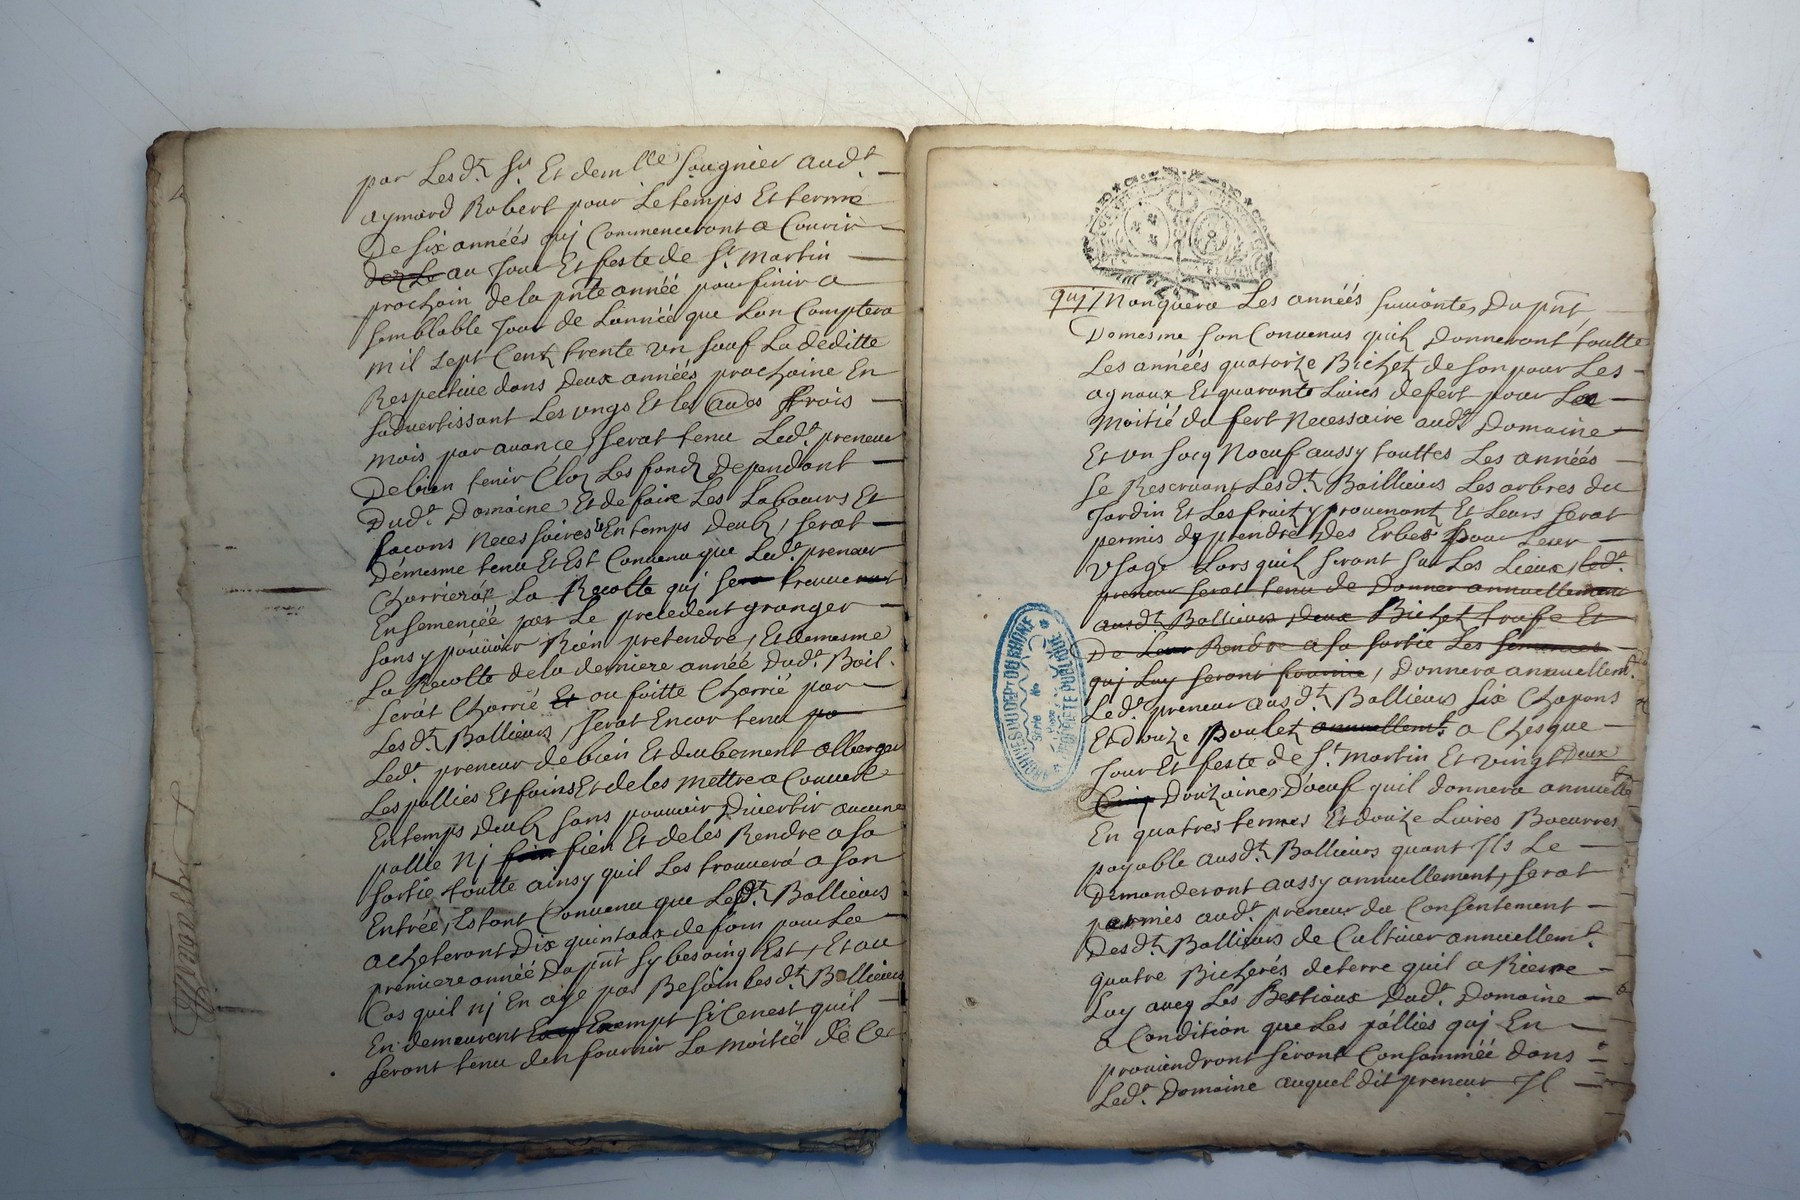 par Lesd.t Sr. Et dem.lle Sougnier aud.t
aymard Robert pour Letemps Et terme
De Six années quj Commenceront a Courir
der Le au Jour Et feste de St. Martin
prochain de la pnte année pour finir a
Semblable Jour de Lannée que Lon Comptera
mil Sept Cent trente un Sauf La deditte
Respectiue dans Deux années prochaine En
Saduertissant Les ungs Et les Audes Trois
mois par auance, Serat tenu Led.t preneur
De bien tenir Clos Les fondz Dependant
Dud.t Domaine Et de faire Les Labours Et
façons Necessaires En temps deub, Serat
Démesme tenu Et Est Conuenu que Led.t preneur
Charriera La Recolte quj Sera treuue
Ensemencée par Le precedent granger
Sans y pouuoir Rien pretendre, Et demesme
La Recolte de la derniere année Dud.t Bail
Serat Charrié Et ou faitte Charrié par
Lesd.t Ballieurs, Serat Encor tenu pa
Led.t preneur de bien Et deubement alberger
Les pallies Et foins Et de les Mettre a Couuert
En temps Deub Sans pouuoir Diuertir aucune
pallie Nj foin fien Et de les Rendre a Sa
Sortie toutte ainsy quil Les trouuerá a Son
Entrée, Estant Conuenu que Lesd.t Ballieurs
acheteront Dix quintaux de foin pour La
premiere année Du pnt Sy besoing Est, Et au
Cas quil nj En aije pas Besoin Lesd.t Ballieurs
En demeurent Exempt Si Cenest quil
Seront tenu den fournir La moitié de Ce
quj Manquera Les années Suiuantes, Du pnt,
Demesme Son Conuenus quils Donneront toutte
Les années quatorze Bichet de Son pour Les
agnaux Et quarante Liures de fert pour La
Moitié du fert Necessaire aud.t Domaine
Et un Socq Noeuf aussy touttes Les années
Se Reseruant Lesd.t Baillieurs Les arbres du
Jardin Et Les fruit y prouenant Et Leurs Serat
permis dy prendre Des Erbes pour Leur
Vsage Lors quils Seront Sur Les Lieux, Led.t
preneur Serat tenu de Donner annuellement
ausd.t Ballieurs deux Bichet trufe Et
De Leur Rendre a Sa Sortie Les Semences
quj Luy Seront fournie, Donnera annuellem.t
Led.t preneur ausd.t Ballieurs Six Chapons
Et douze Poulet annuellem.t a Chasque
Jour Et feste de St. Martin Et vingt Deux
Cinq Douzaines D'oeuf quil donnera annuelle
En quatres termes Et douze Liures Boeurres
payable ausd.t Ballieurs quant Ils Le
Demanderont aussy annuellement, Serat
permis aud.t preneur du Consentement
Desd.t Ballieurs de Cultiuer annuellem.t
quatre Bicherés de terre quil a Riere
Luy aueq Les Bestiaux Dud.t Domaine
a Condition que Les pállies quj En
prouiendront Seront Consommée dans
Led.t Domaine auquel dit preneur Il
ARCHIVES DU DEPt DU RHONE
PROPRIETE PUBLIQUE